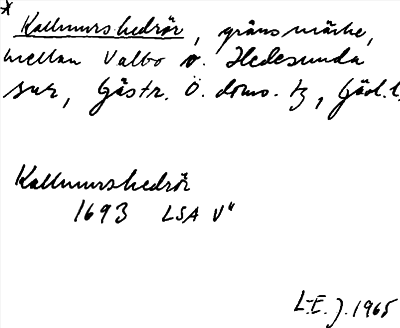 * Kallmurshedrör, gränsmärke,
mellan Valbo o. Hedesunda
snr, Gästr. Ö. doms. tg, Gävl. l.
Kallmurshedrör
1693 LSA V"
L-E. J. 1965